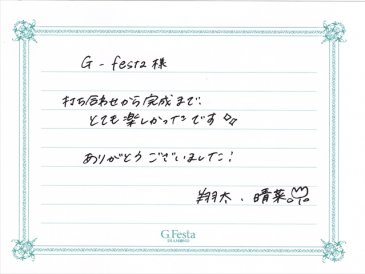 G-festa様
打ち合わせから完成まで、
とても楽しかったです
ありがとうございました!
翔太、晴菜
G.Festa
DIAMOND